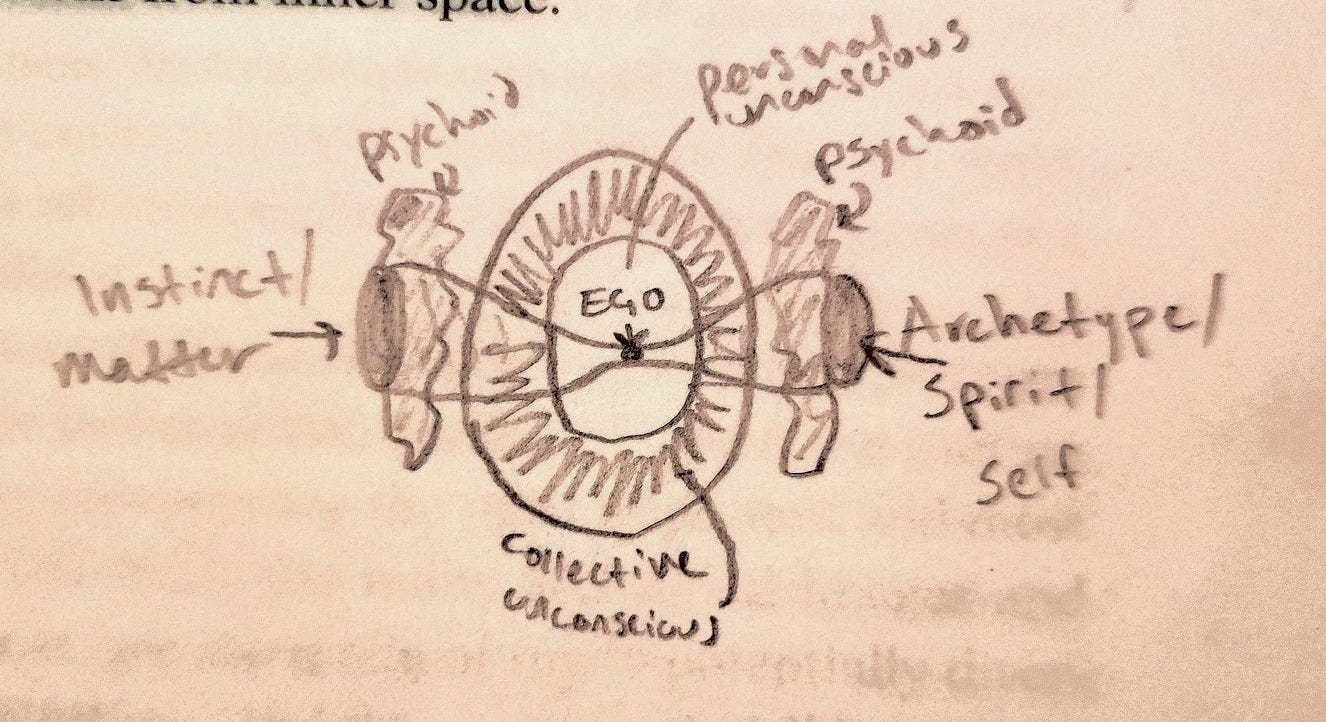 from inner space.
personal
unconscious
psychoid
psychoid
EGO
Instinct/
matter
Archetype/
Spirit/
Self
collective
unconscious